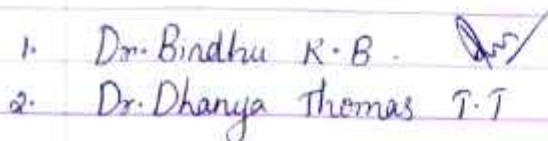 1. Dr. Bindhu K. B.
2. Dr. Dhanya Thomas T. T